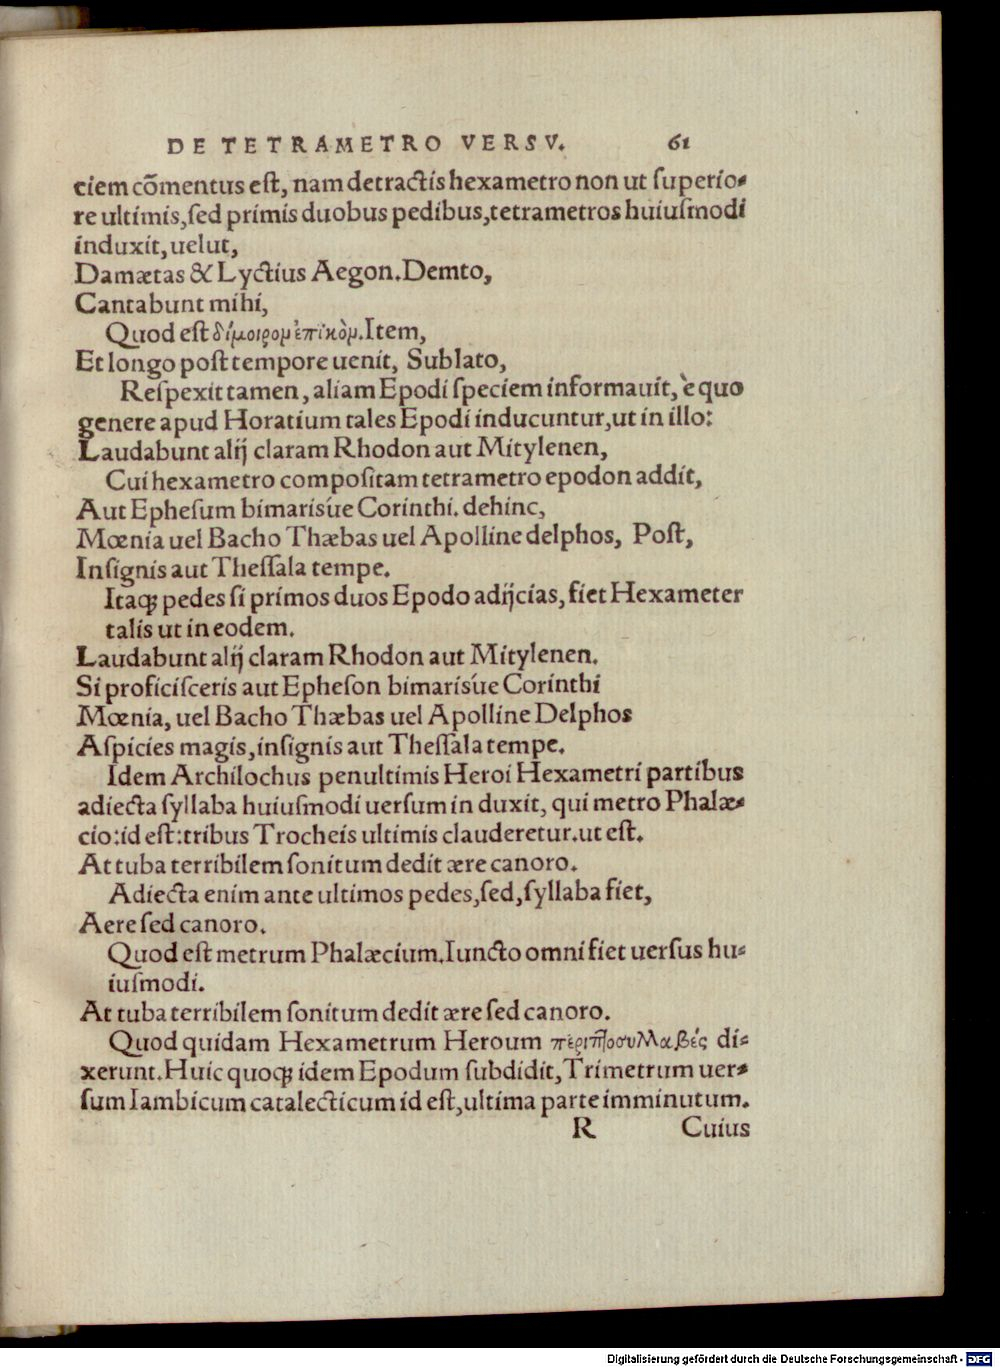 DE TETRAMETRO VERSV. 61
ciem cõmentus est, nam detractis hexametro non ut superio-
re ultimis, sed primis duobus pedibus, tetrametros huiusmodi
induxit, uelut,
Damætas & Lyctius Aegon. Demto,
Cantabunt mihi,
Quod est δίμοιρομ ἐπικὸμ. Item,
Et longo post tempore uenit, Sublato,
Respexit tamen, aliam Epodi speciem informauit, è quo
genere apud Horatium tales Epodi inducuntur, ut in illo:
Laudabunt alij claram Rhodon aut Mitylenen,
Cui hexametro compositam tetrametro epodon addit,
Aut Ephesum bimarisúe Corinthi. dehinc,
Mœnia uel Bacho Thæbas uel Apolline delphos, Post,
Insignis aut Thessala tempe.
Itaqꝫ pedes si primos duos Epodo adijcias, fiet Hexameter
talis ut in eodem.
Laudabunt alij claram Rhodon aut Mitylenen.
Si proficisceris aut Epheson bimarisúe Corinthi
Mœnia, uel Bacho Thæbas uel Apolline Delphos
Aspicies magis, insignis aut Thessala tempe.
Idem Archilochus penultimis Heroi Hexametri partibus
adiecta syllaba huiusmodi uersum in duxit, qui metro Phalæ-
cio: id est: tribus Trocheis ultimis clauderetur. ut est.
At tuba terribilem sonitum dedit ære canoro.
Adiecta enim ante ultimos pedes, sed, syllaba fiet,
Aere sed canoro.
Quod est metrum Phalæcium. Iuncto omni fiet uersus hu-
iusmodi.
At tuba terribilem sonitum dedit ære sed canoro.
Quod quidam Hexametrum Heroum περιττοσυλλαβές di-
xerunt. Huic quoqꝫ idem Epodum subdidit, Trimetrum uer-
sum Iambicum catalecticum id est, ultima parte imminutum.
R Cuius
Digitalisierung gefördert durch die Deutsche Forschungsgemeinschaft - DFG